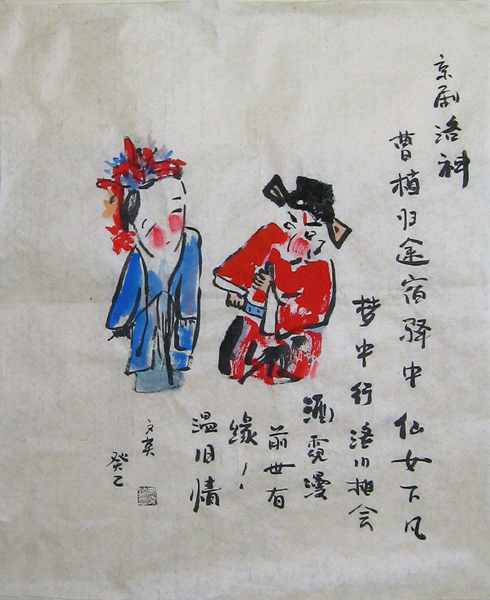 京剧洛神
曹植归途宿驿中仙女下凡
梦中行洛川相会
霓漫
前世有
缘！
温旧情
癸巳